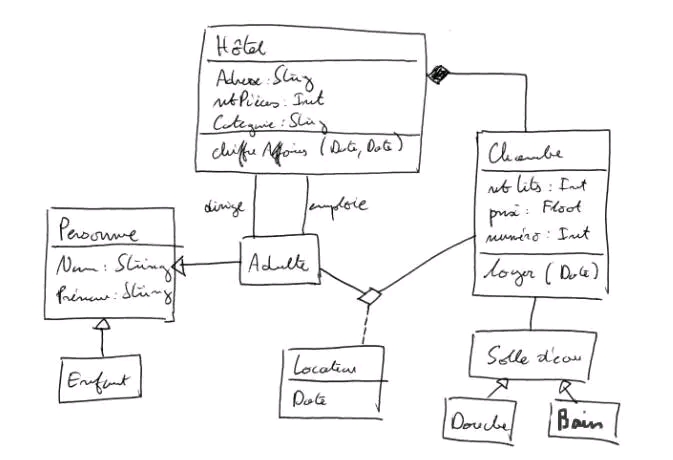 Hôtel
Adresse : String
nbPièces : Int
Categorie : String
chiffre Affaires (Date, Date)
Chambre
nb lits : Int
prix : Float
numéro : Int
loyer (Date)
dirige
emploie
Personne
Nom : String
Prénom : String
Adulte
Enfant
Location
Date
Salle d'eau
Douche
Bain